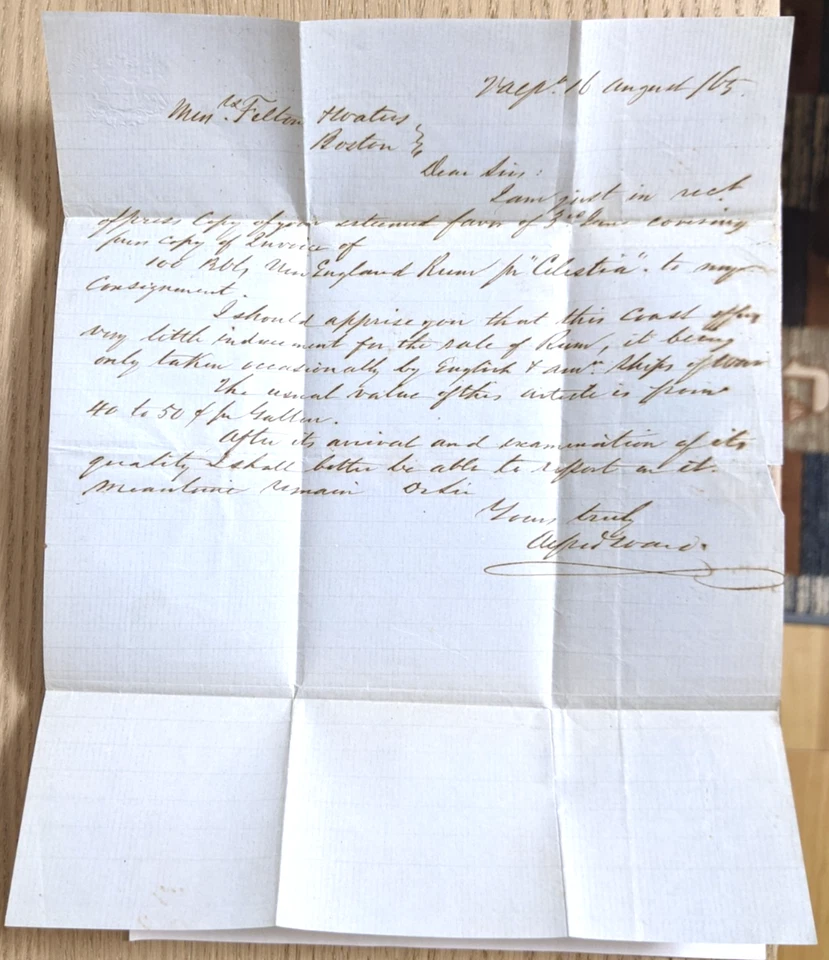 Valpo. 16 August /65.
Messrs. Felton & Waters
Boston
Dear Sirs:
I am just in rect.
of press Copy of your esteemed favor of 3rd covering
press copy of Invoice of
100 Bbls New England Rum pr "Celestia" to my
Consignment.
I should apprise you that this coast offers
very little inducement for the sale of Rum, it being
only taken occasionally by English & amn. ships of war
The usual value of this article is from
40 to 50 ¢ pr Gallon.
After its arrival and examination of its
quality I shall better be able to report on it.
Meantime remain
Yours truly
Alfred Ward.